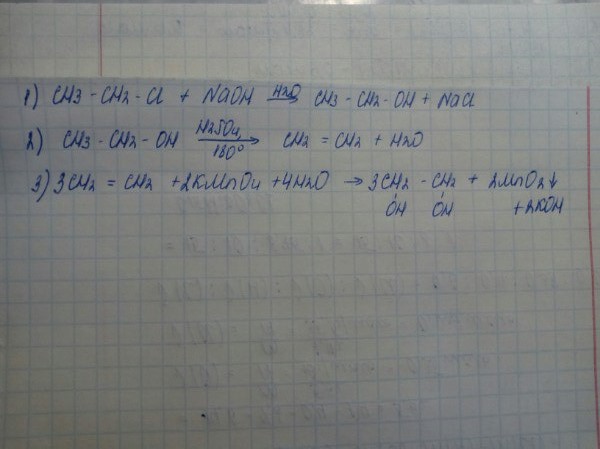 1) CH3 - CH2 - Cl + NaOH H2O → CH3 - CH2 - OH + NaCl
2) CH3 - CH2 - OH H2SO4 180° → CH2 = CH2 + H2O
3) 3CH2 = CH2 + 2KMnO4 + 4H2O → 3CH2 - CH2 + 2MnO2↓
OH OH + 2KOH